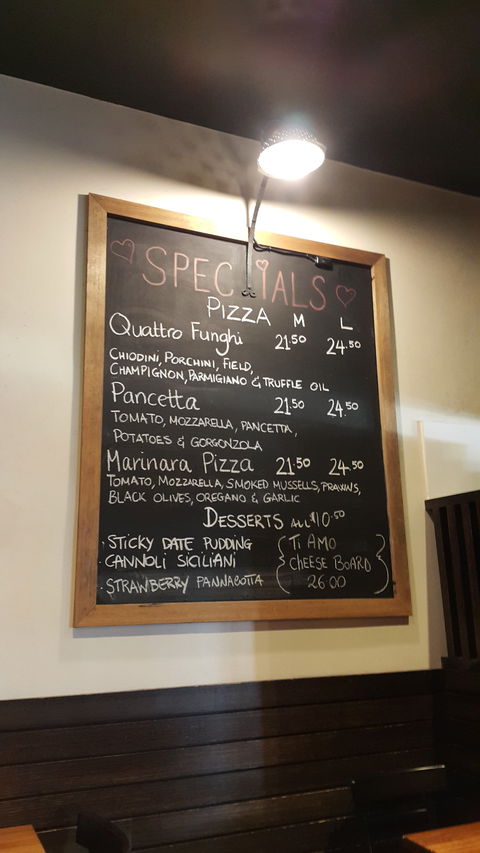 SPECIALS
PIZZA M L
Quattro Funghi 21.50 24.50
CHIODINI, PORCHINI, FIELD,
CHAMPIGNON, PARMIGIANO & TRUFFLE OIL
Pancetta 21.50 24.50
TOMATO, MOZZARELLA, PANCETTA,
POTATOES & GORGONZOLA
Marinara Pizza 21.50 24.50
TOMATO, MOZZARELLA, SMOKED MUSSELLS, PRAWNS,
BLACK OLIVES, OREGANO & GARLIC
DESSERTS ALL $10.50
· STICKY DATE PUDDING
CANNOLI SICILIANI
· STRAWBERRY PANNACOTTA
{ TI AMO }
{ CHEESE BOARD }
{ 26 00 }